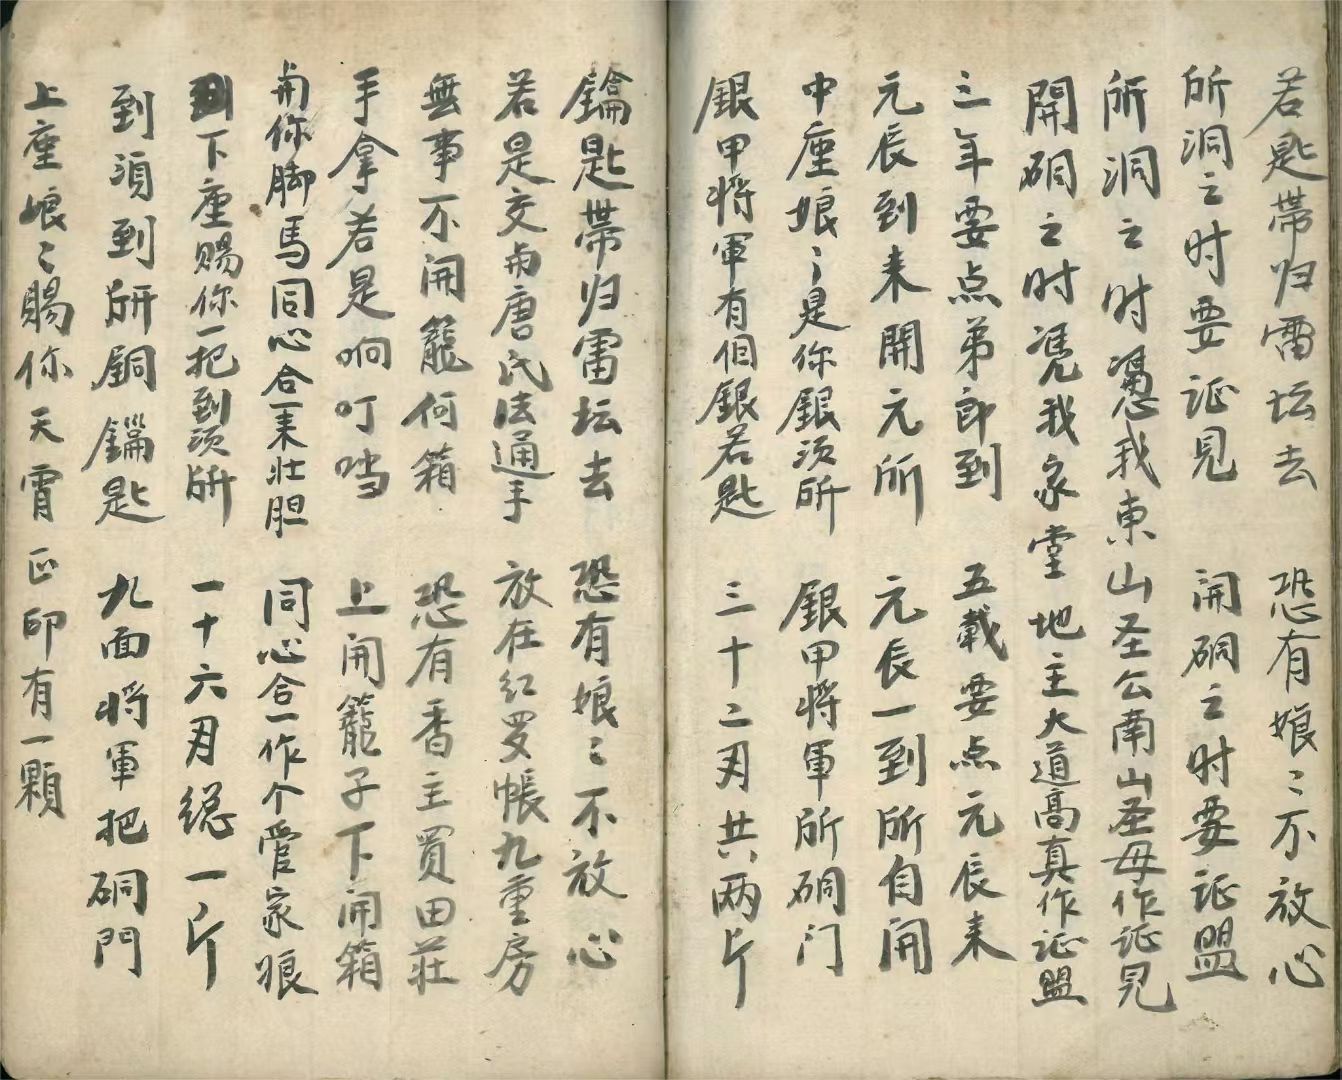 若匙帶归雷坛去 恐有娘〻不放心
所洞之时要证见 開硐之时要证盟
所洞之时憑我東山圣公南山圣母作证見
開硐之时凭我家堂地主大道高真作证盟
三年要点弟郎到 五载要点元辰来
元辰到来開元所 元辰一到所自開
中座娘〻是你銀须所 銀甲将軍所硐门
銀甲将軍有個銀若匙 三十二刄共两斤
鑰匙帶归雷坛去 恐有娘〻不放心
若是交与唐氏法通手 放在红罗帳九重房
無事不開籠何箱 恐有香主買田莊
手拿若是响叮噹 上開籠子下開箱
与你脚馬同心合来壮胆 同心合一作个管家娘
下座賜你一把到须所 一十六刄総一斤
到須到所銅鑰匙 九面将軍把硐門
上座娘〻賜你天霄正印有一顆